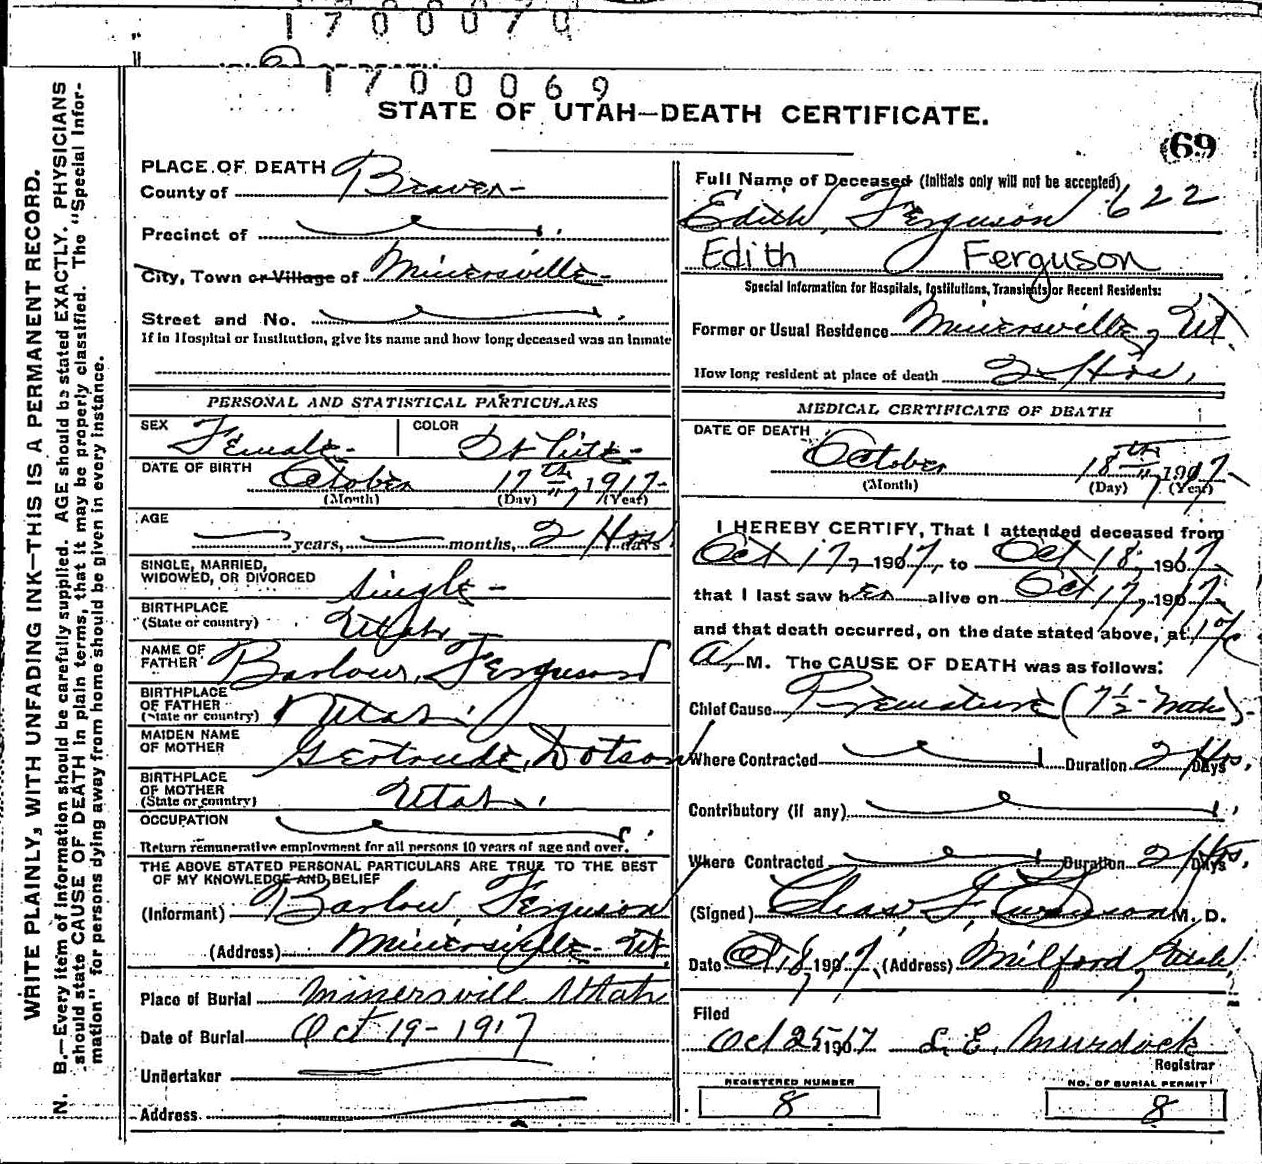 1700070
1700069
STATE OF UTAH—DEATH CERTIFICATE.
(69
WRITE PLAINLY, WITH UNFADING INK—THIS IS A PERMANENT RECORD.
N. B.—Every item of information should be carefully supplied. AGE should be stated EXACTLY. PHYSICIANS
should state CAUSE OF DEATH in plain terms, that it may be properly classified. The "Special Infor-
mation" for persons dying away from home should be given in every instance.
PLACE OF DEATH
County of Beaver
Precinct of
City, Town or Village of Minersville
Street and No.
If in Hospital or Institution, give its name and how long deceased was an inmate
PERSONAL AND STATISTICAL PARTICULARS
SEX Female COLOR White
DATE OF BIRTH October 17th 1917
(Month) (Day) (Year)
AGE years, months, 2 Hrs days
SINGLE, MARRIED,
WIDOWED, OR DIVORCED Single
BIRTHPLACE
(State or country) Utah
NAME OF
FATHER Barlow Ferguson
BIRTHPLACE
OF FATHER
(State or country) Utah
MAIDEN NAME
OF MOTHER Gertrude Dotson
BIRTHPLACE
OF MOTHER
(State or country) Utah
OCCUPATION
Return remunerative employment for all persons 10 years of age and over.
THE ABOVE STATED PERSONAL PARTICULARS ARE TRUE TO THE BEST
OF MY KNOWLEDGE AND BELIEF
(Informant) Barlow Ferguson
(Address) Minersville Ut.
Place of Burial Minersvill Utah
Date of Burial Oct 19-1917
Undertaker
Address
Full Name of Deceased (Initials only will not be accepted)
Edith Ferguson 622
Edith Ferguson
Special Information for Hospitals, Institutions, Transients or Recent Residents:
Former or Usual Residence Minersville, Ut.
How long resident at place of death 2 Hrs,
MEDICAL CERTIFICATE OF DEATH
DATE OF DEATH
October 18th 1917
(Month) (Day) (Year)
I HEREBY CERTIFY, That I attended deceased from
Oct 17, 1917, to Oct 18, 1917
that I last saw her alive on Oct 17, 1917
and that death occurred, on the date stated above, at
A. M. The CAUSE OF DEATH was as follows:
Chief Cause Premature (7½ Mths)
Where Contracted Duration 2 Hrs, Days
Contributory (if any)
Where Contracted Duration 2 Hrs, Days
(Signed) Chas. M. D.
Date Oct 18, 1917, (Address) Milford, Utah
Filed
Oct 25 1917 L. E. Murdock
Registrar
REGISTERED NUMBER
8
NO. OF BURIAL PERMIT
8